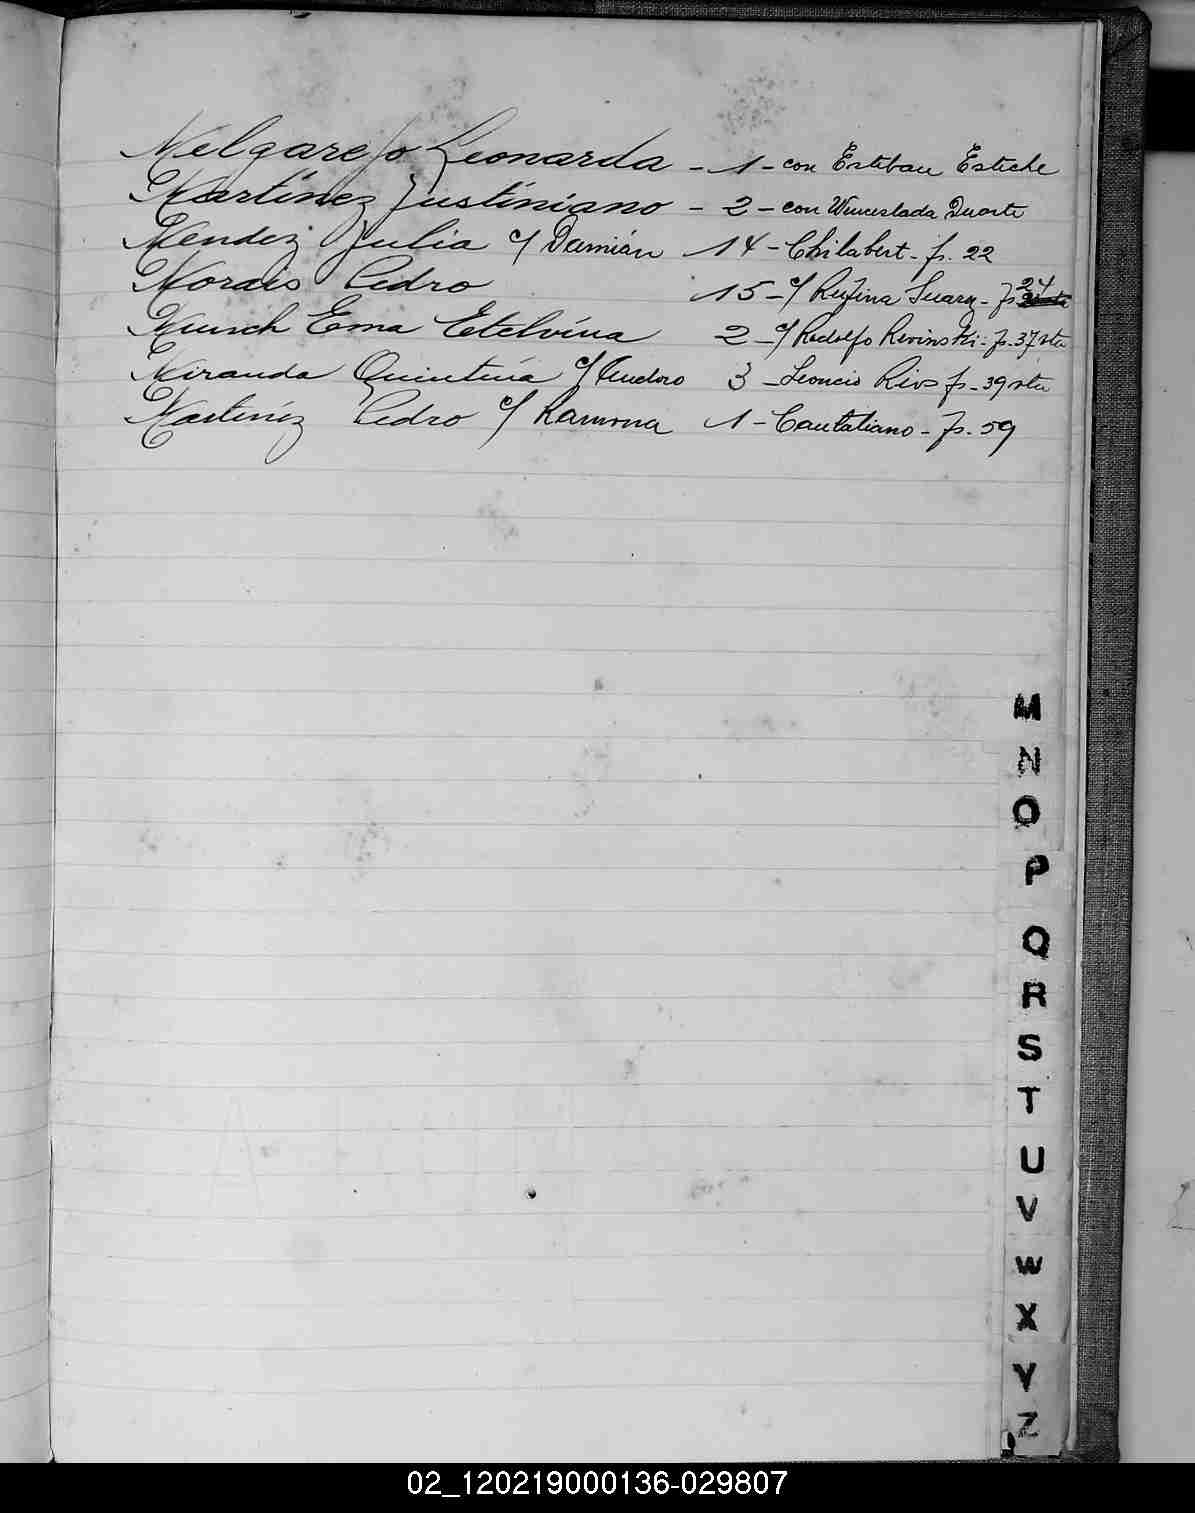 Melgarejo Leonarda - 1 - con Esteban Esteche
Martínez Justiniano - 2 - con Wenceslada Duarte
Mendez Julia c/ Damián 14 - Chilabert - fs. 22
Morais Pedro 15 - c/ Rufina Suarez - fs 24
Munsch Ema Etelvina 2 - c/ Rodolfo Rivinski - fs. 37 vta
Miranda Quintina c/ 3 - Leoncio Rios fs - 39 vta
Martinez Pedro c/ Ramona 1 - Cantaliano - fs. 59
M
N
O
P
Q
R
S
T
U
V
W
X
Y
Z
02_120219000136-029807